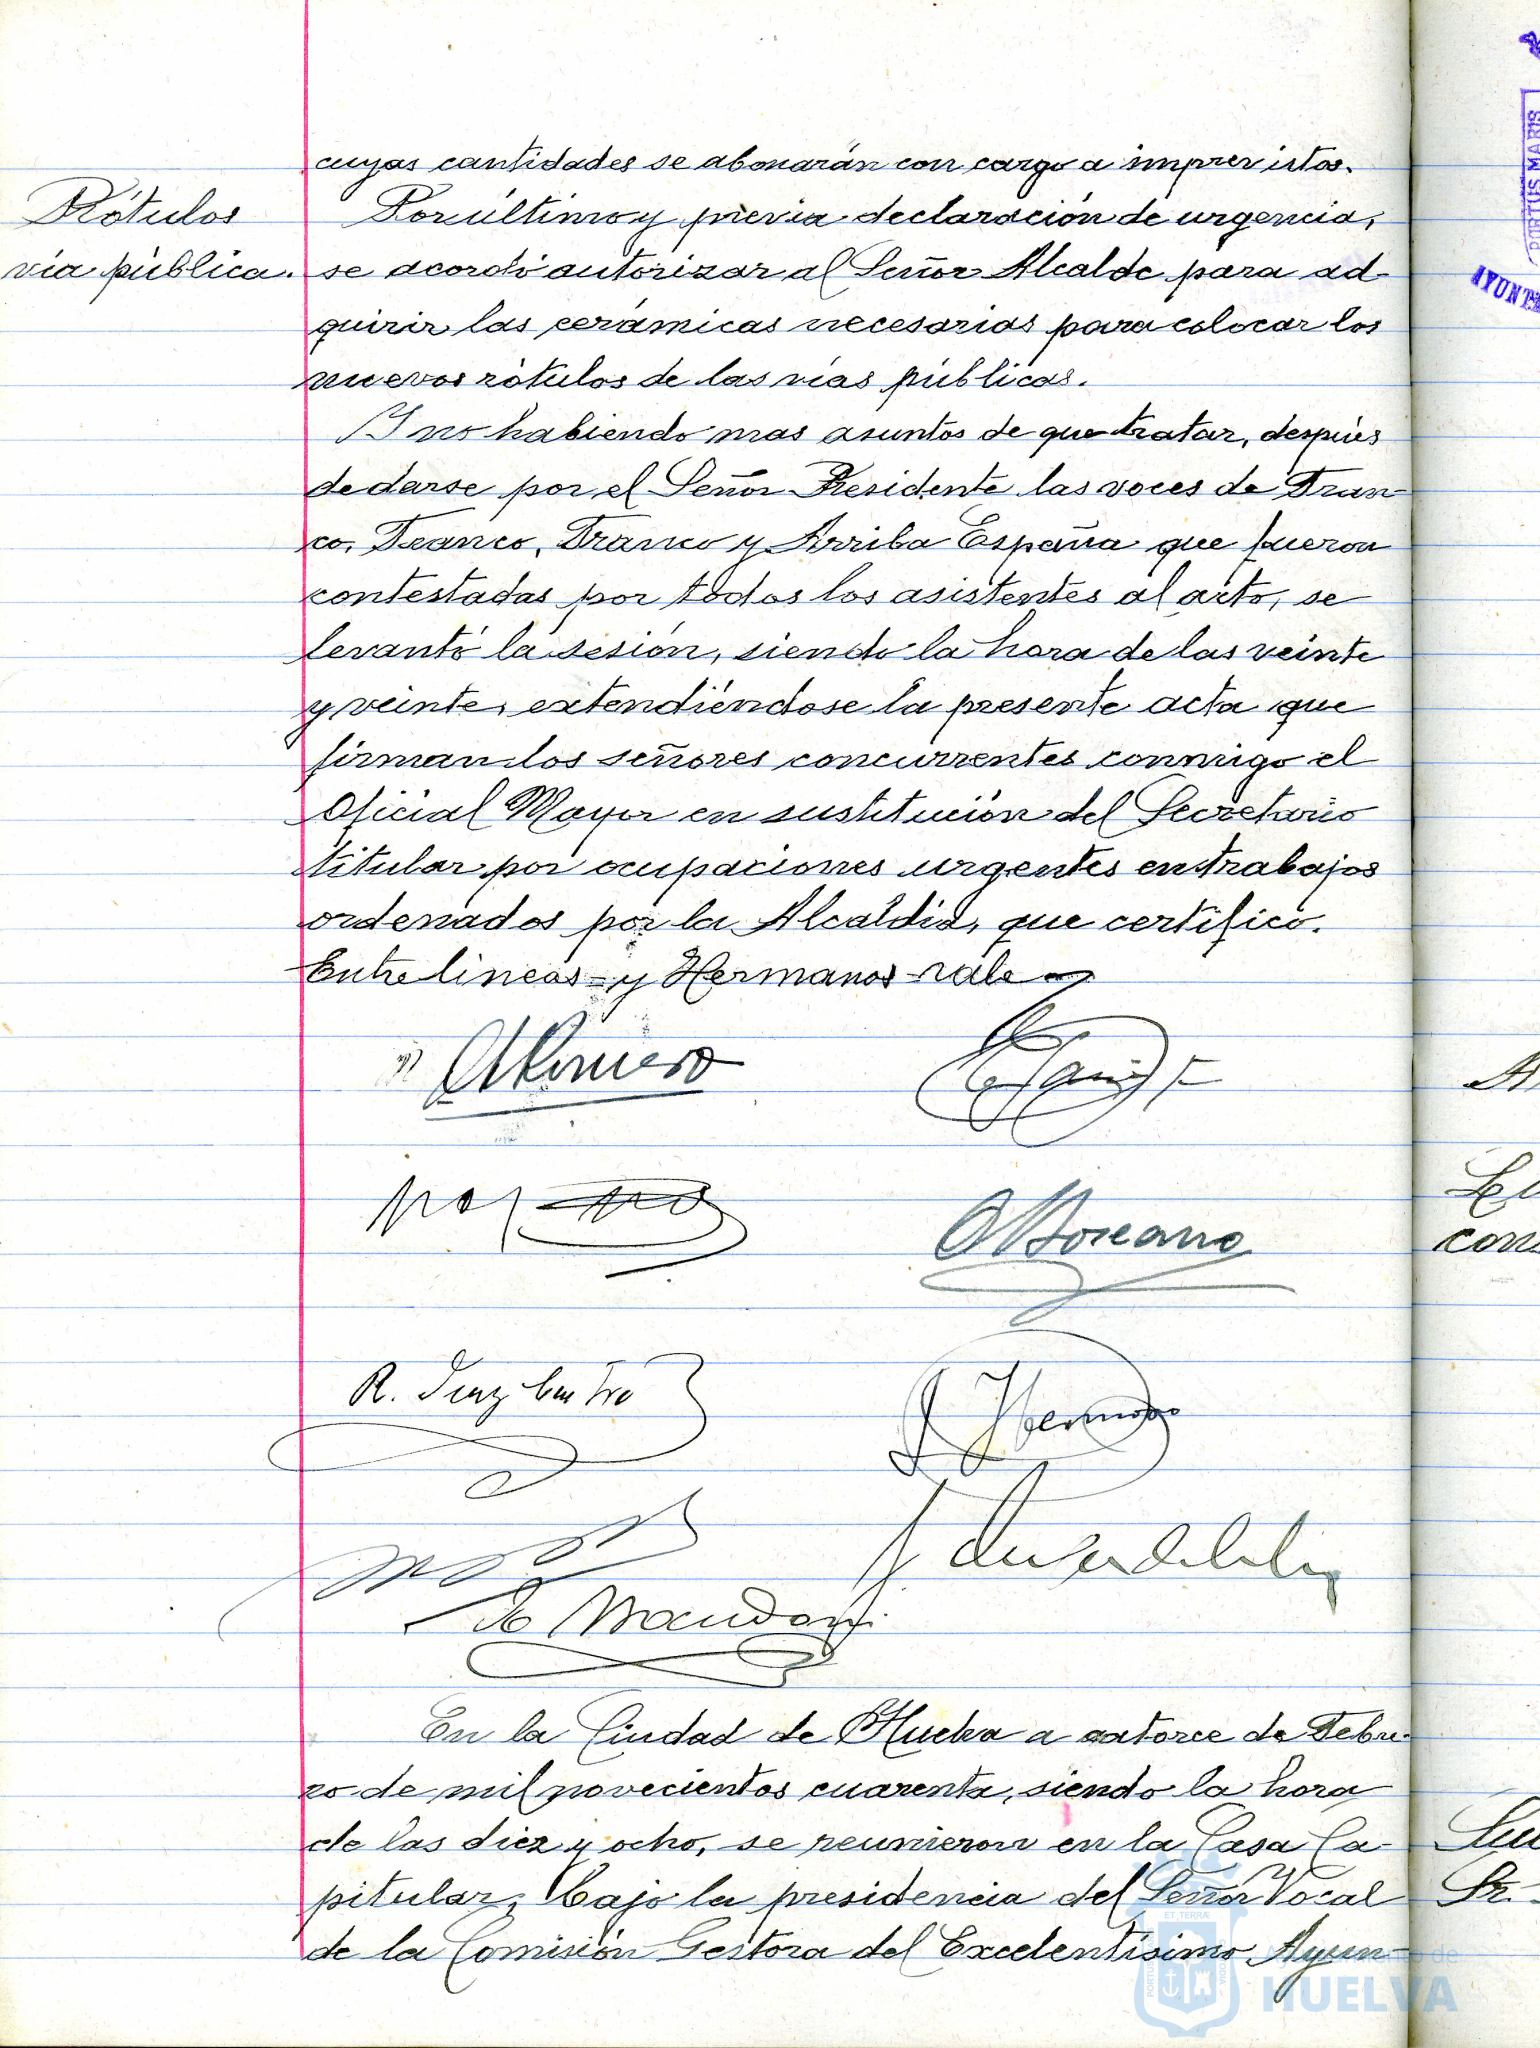 cuyas cantidades se abonarán con cargo a imprevistos.
Rótulos
vía pública.
Por último y previa declaración de urgencia,
se acordó autorizar al Señor Alcalde para ad-
quirir las cerámicas necesarias para colocar los
nuevos rótulos de las vías públicas.
Y no habiendo mas asuntos de que tratar, despúes
de darse por el Señor Presidente las voces de Fran-
co, Franco, Franco y Arriba España que fueron
contestadas por todos los asistentes al acto, se
levantó la sesión, siendo la hora de las veinte
y veinte, extendiéndose la presente acta que
firman los señores concurrentes conmigo el
Oficial Mayor en sustitución del Secretario
titular por ocupaciones urgentes en trabajos
ordenados por la Alcaldía, que certifico.
Entre lineas - y Hermanos - vale
R. Diaz
En la Ciudad de Huelva a catorce de Febre-
ro de mil novecientos cuarenta, siendo la hora
de las diez y ocho, se reunieron en la Casa Ca-
pitular, bajo la presidencia del Señor Vocal
de la Comisión Gestora del Excelentísimo Ayun-
HUELVA
PORTUS MARIS
AYUNT